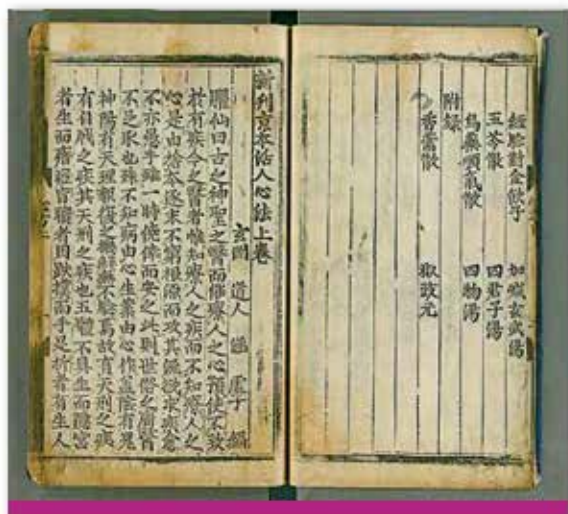 經驗對金飲子 加減玄武湯
五苓散 四君子湯
烏藥順氣散 四物湯
附錄
香薷散 椒豉元
新刊京本活人心法上卷
玄洲 道人 涵虛子 編
臞仙曰古之神聖之醫而能療人之心預使不致
於有疾今之醫者惟知療人之疾而不知療人之
心是由捨本逐末不窮根源而攻其流欲求疾愈
不亦愚乎雖一時僥倖而安之此則世俗之庸醫
不足取也殊不知病由心生業由心作蓋陰有鬼
神陽有天理報復之機鮮無不驗焉故有天刑之疾
有自戕之疾其天刑之疾也五體不具生而隱宮
者生而瘖瘂盲聵者因跌撲而手足折者有生人